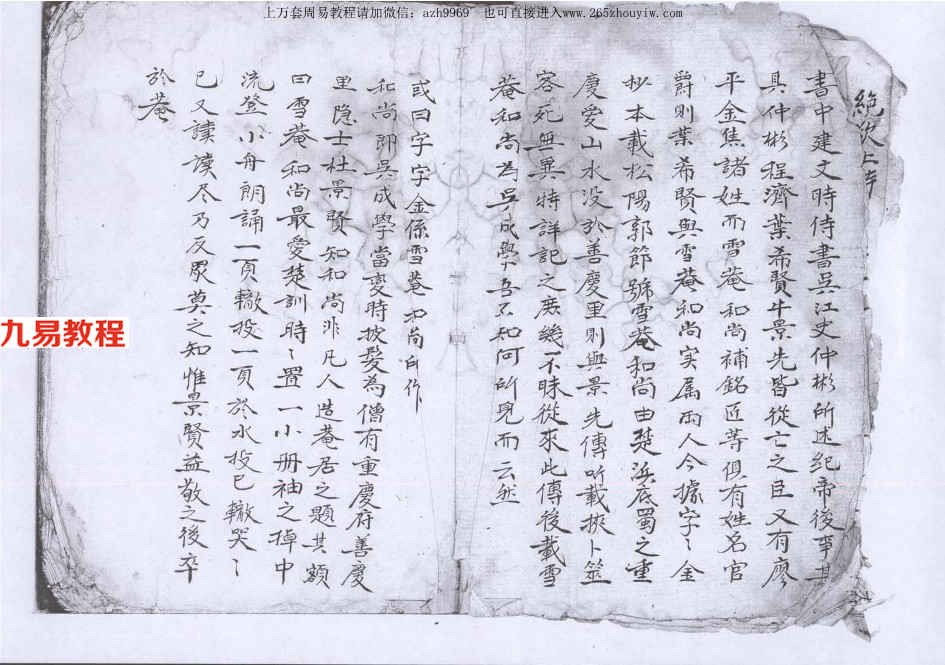 上万套周易教程请加微信：azh9969 也可直接进入www.265zhouyiw.com
九易教程
書中建文時侍書吳江史仲彬所述紀帝後事其
具仲彬程濟葉希賢牛景先皆從亡之臣又有廖
平金焦諸姓而雪菴和尚補鍋匠等俱有姓名官
爵則葉希賢與雪菴和尚实属兩人今據字〻金
抄本載松陽郭節號雪菴和尚由楚浜底蜀之重
慶愛山水没於善慶里則與景先傳所載挾卜筮
客死無異特詳記之庶幾不昧從來此傳後載雪
菴和尚為吳成學吾不知何所見而云然
或曰字字金係雪菴和尚所作
和尚即吳成學當变時披髮為僧有重慶府善慶
里隐士杜景賢知和尚非凡人造菴居之題其额
曰雪菴和尚最爱楚訓時〻置一小册袖之掉中
流登小舟朗誦一頁轍投一頁於水投已轍哭〻
已又讀讀尽乃反眾莫之知惟景賢益敬之後卒
於菴